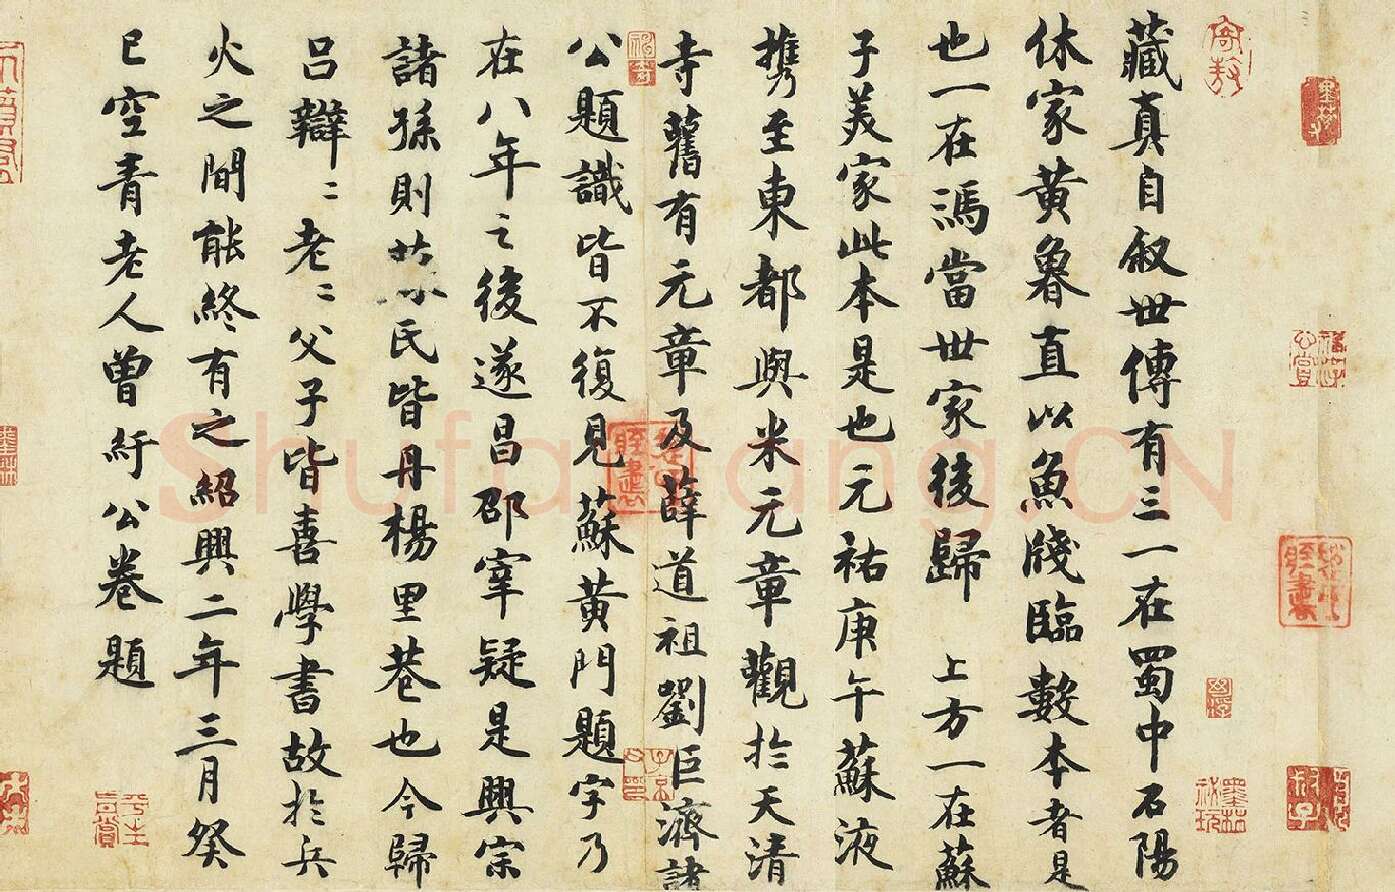 藏真自叙世傳有三一在蜀中石陽
休家黄魯直以魚牋臨數本者是
也一在馮當世家後歸 上方一在蘇
子美家此本是也元祐庚午蘇液
攜至東都與米元章觀於天清
寺舊有元章及薛道祖劉巨濟諸
公題識皆不復見蘇黄門題字乃
在八年之後遂昌邵宰疑是興宗
諸孫則蘇氏皆丹楊里巷也今歸
吕辯二老二父子皆喜學書故於兵
火之間能終有之紹興二年三月癸
巳空青老人曾紆公卷題
Shufawang.CN